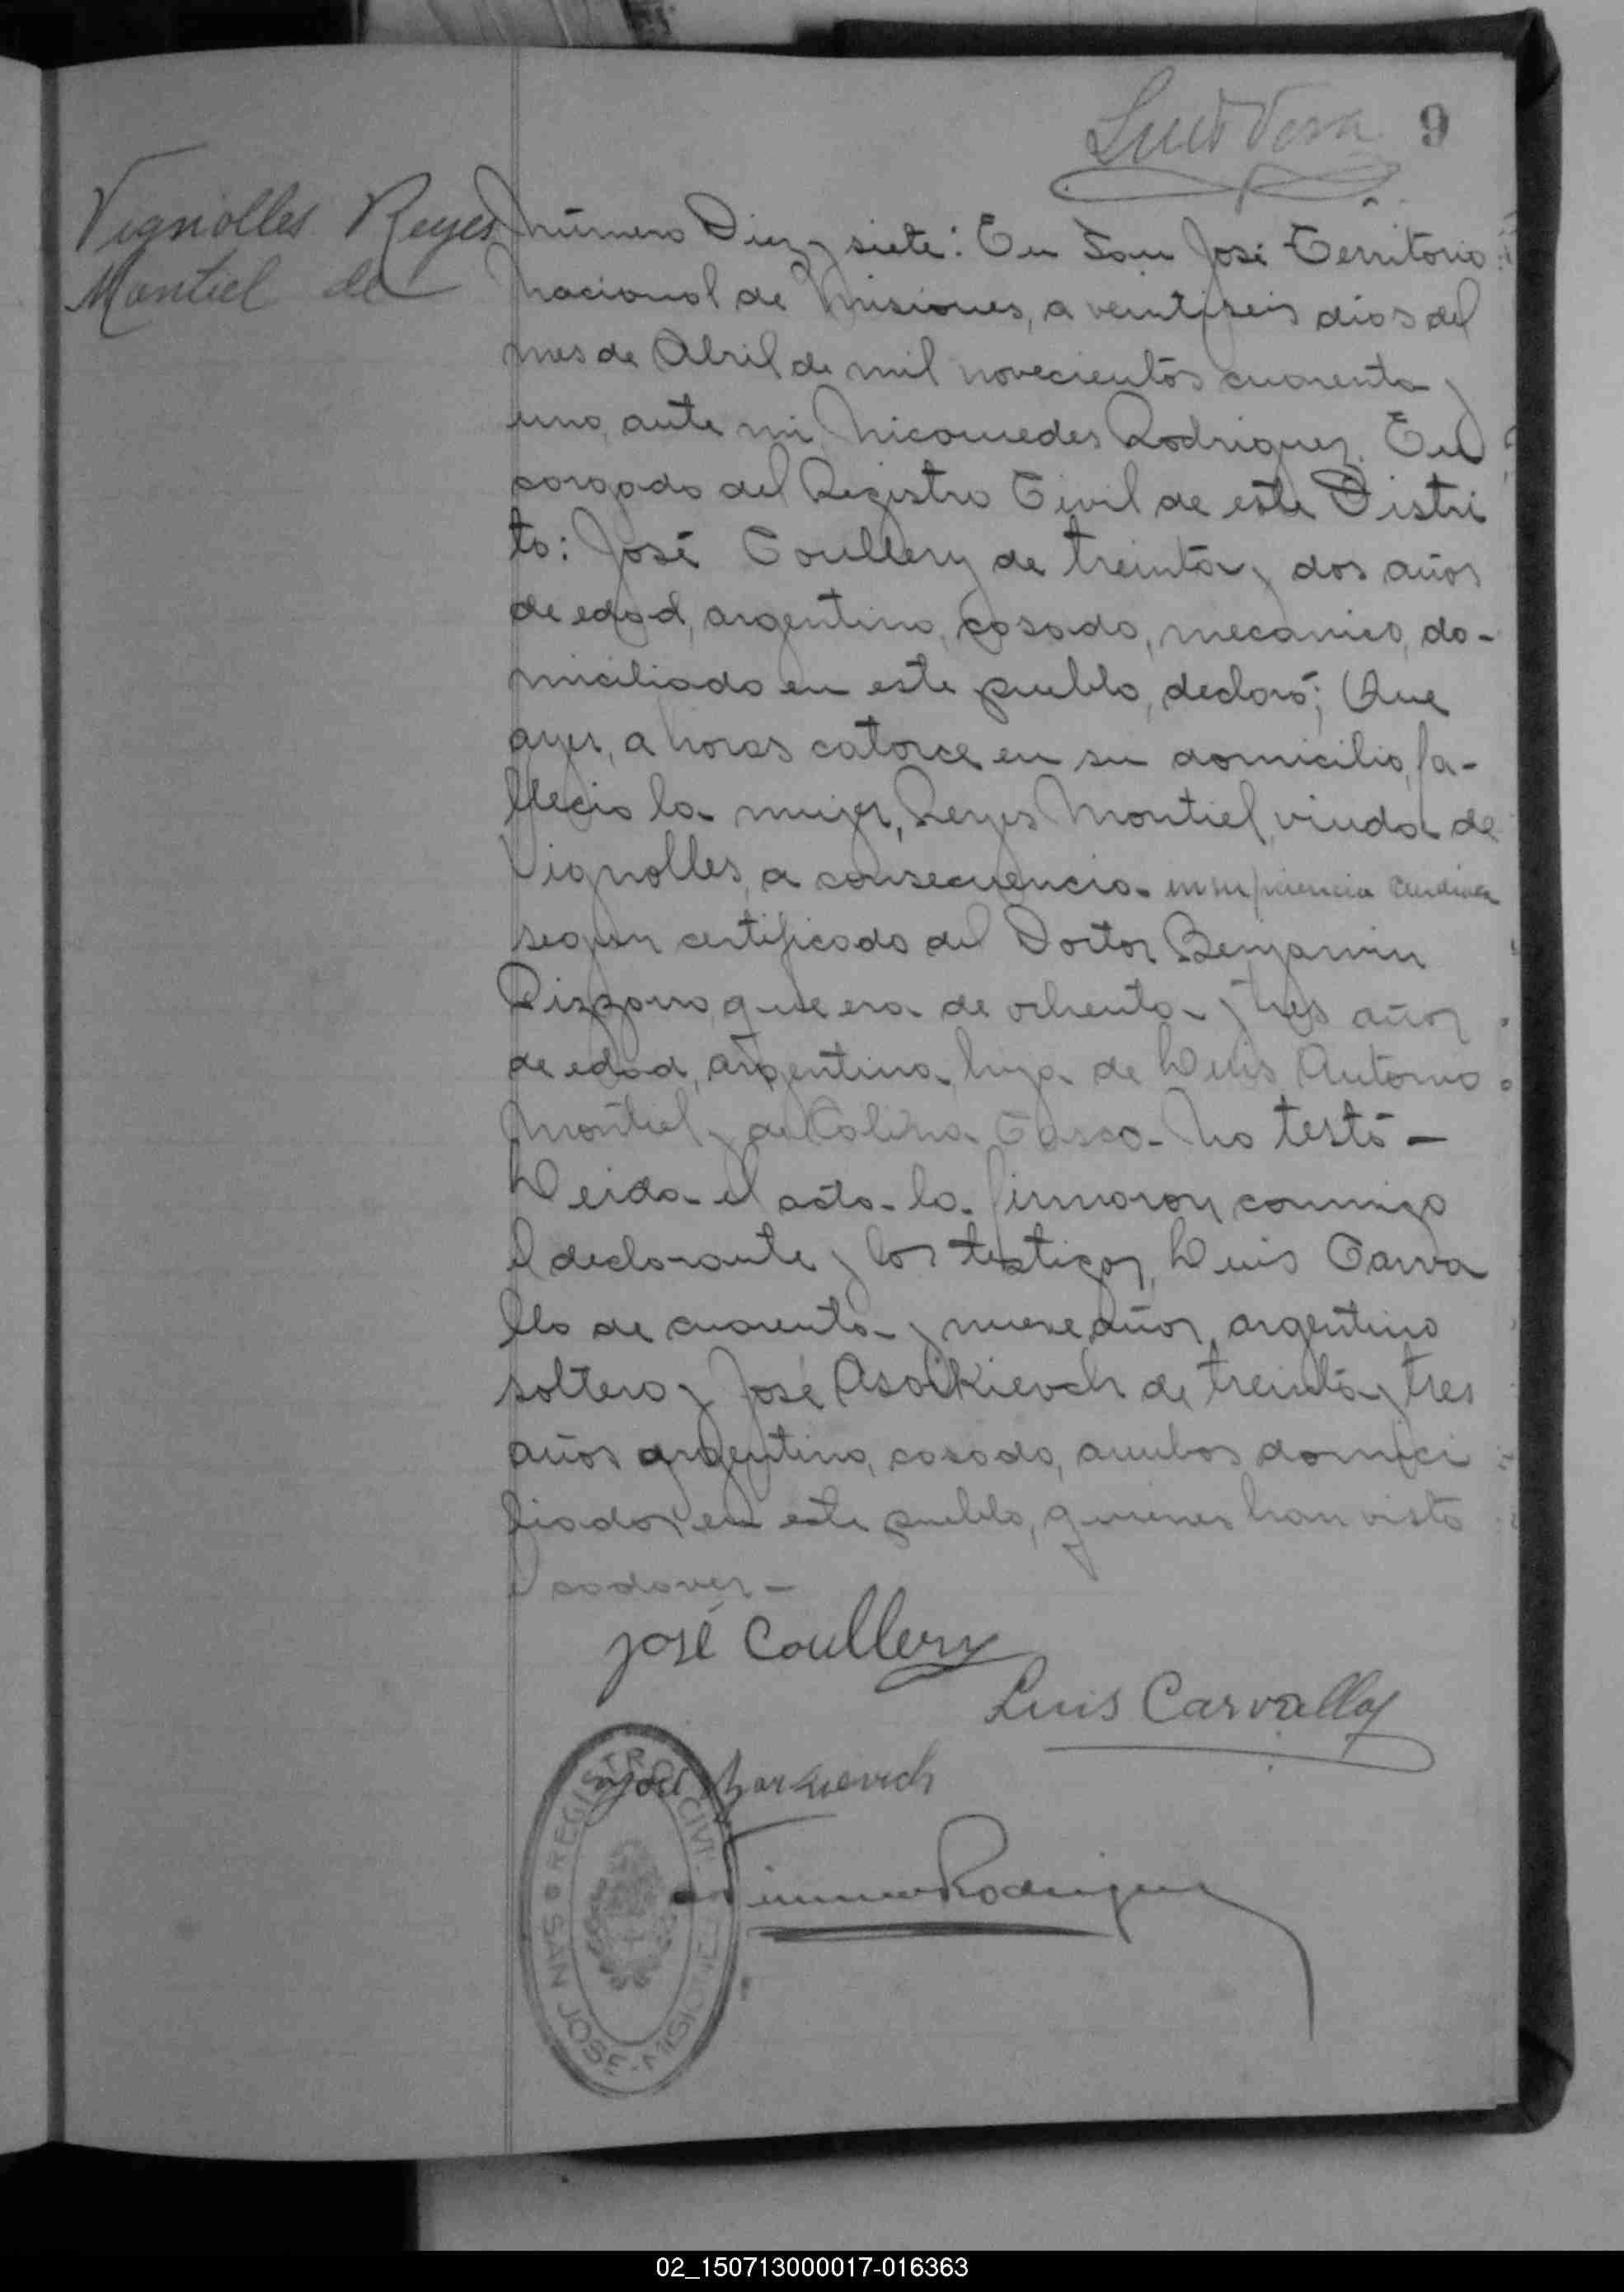 9
Vignolles Reyes
Montiel de
Número Diez y siete: En San José Territorio
Nacional de Misiones, a veintiseis dias del
mes de Abril de mil novecientos cuarenta y
uno, ante mi Nicomedes Rodriguez. En
cargado del Registro Civil de este Distri
to: José Coullery de treinta y dos años
de edad, argentino, casado, mecanico, do-
miciliado en este pueblo, declaró; Que
ayer, a horas catorce en su domicilio, fa-
llecio la mujer, Reyes Montiel, viuda de
Vignolles, a consecuencia insuficiencia cardiaca
segun certificado del Doctor Benjamin
que era de ochenta y tres años
de edad, argentina, hija de Luis Antonio
Montiel y de No testó -
Leida el acta la firmaron conmigo
el declarante y los testigos, Luis Carva
llo de cuarenta y nueve años, argentino
soltero y José de treinta y tres
años argentino, casado, ambos domici
liados en este pueblo, quienes han visto
el cadaver -
José Coullery
Luis Carvallo
José
Rodriguez
REGISTRO CIVIL
SAN JOSE - MISIONES
02_150713000017-016363